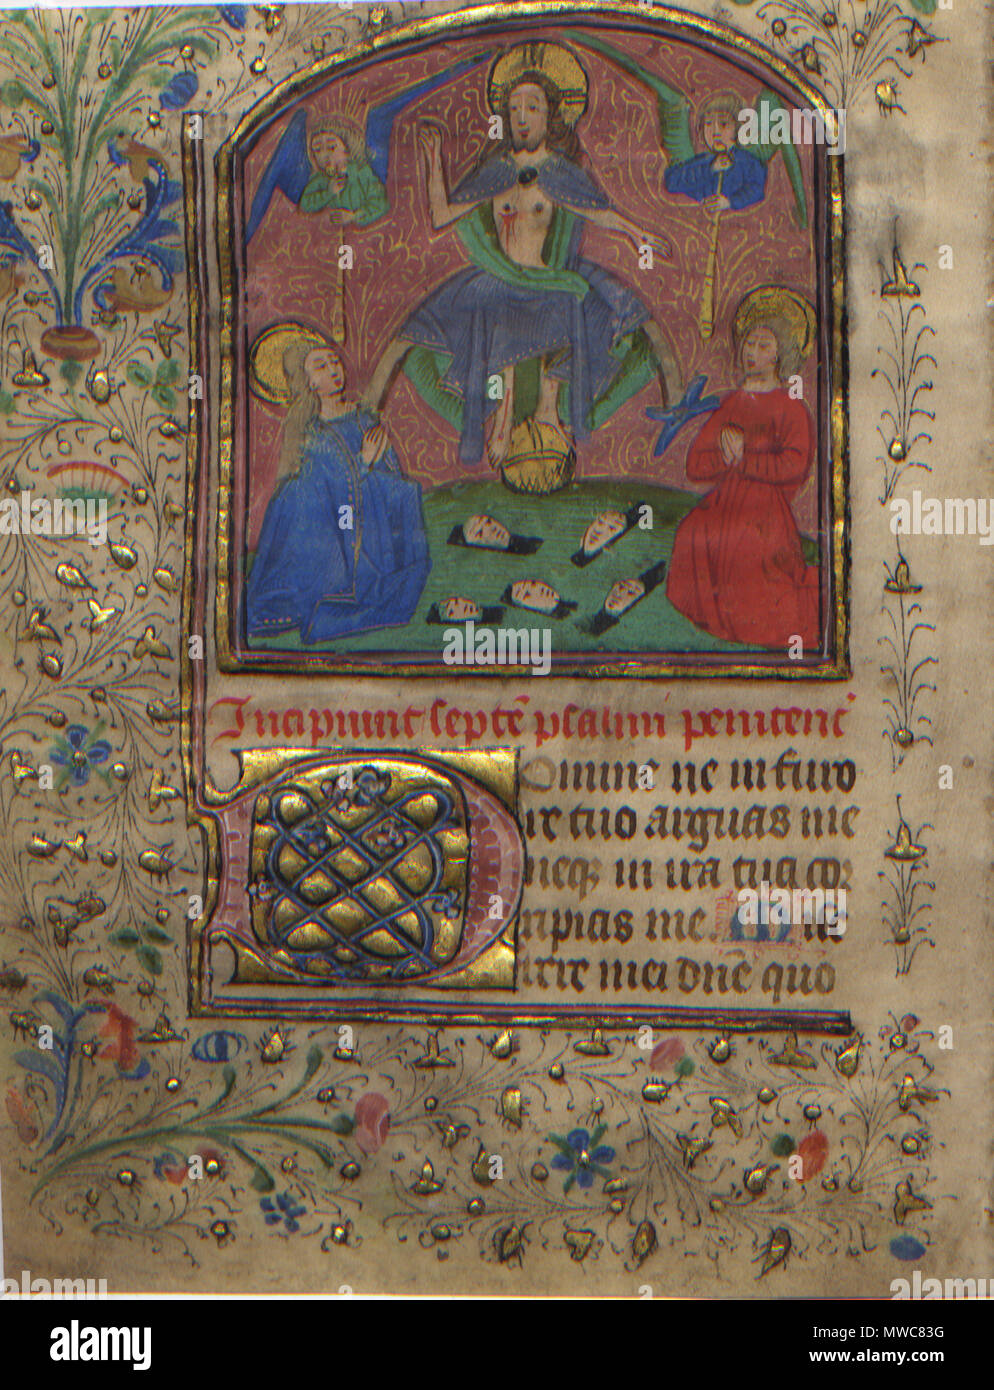 Incipiunt septẽ psalmi penitenc̃
Domine ne in furo
re tuo arguas me
neq; in ira tua cor
ripias me. Mise
rere mei dñe quo
alamy
Image ID: MWC83G
www.alamy.com